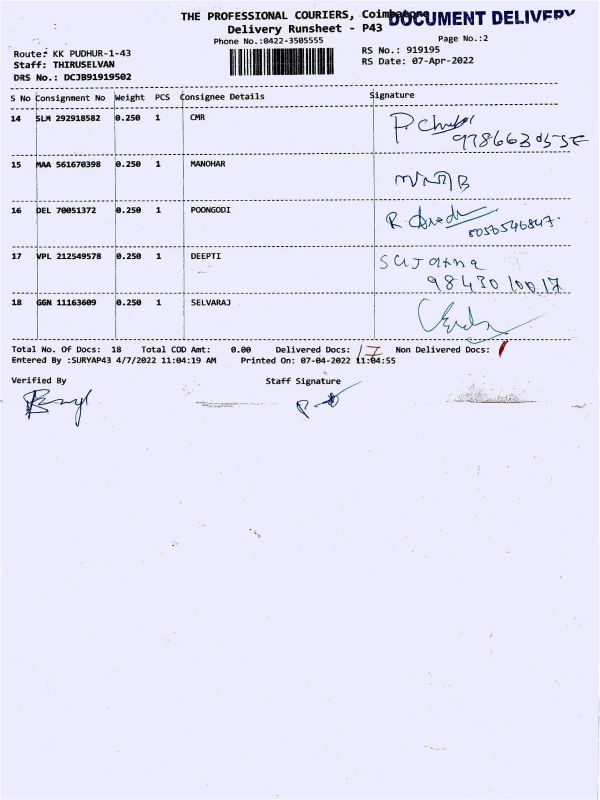 THE PROFESSIONAL COURIERS, Coimbatore
DOCUMENT DELIVERY
Delivery Runsheet - P43
Phone No.:0422-3505555
Page No.:2
Route: KK PUDHUR-1-43
RS No.: 919195
Staff: THIRUSELVAN
RS Date: 07-Apr-2022
DRS No.: DCJB91919502
S No Consignment No Weight PCS Consignee Details Signature
14 SLM 292918582 0.250 1 CMR
15 MAA 561670398 0.250 1 MANOHAR
16 DEL 70051372 0.250 1 POONGODI
8056546847
17 VPL 212549578 0.250 1 DEEPTI
Sujatha
98430 10017
18 GGN 11163609 0.250 1 SELVARAJ
Total No. Of Docs: 18 Total COD Amt: 0.00 Delivered Docs: 17 Non Delivered Docs: 1
Entered By :SURYAP43 4/7/2022 11:04:19 AM Printed On: 07-04-2022 11:04:55
Verified By Staff Signature